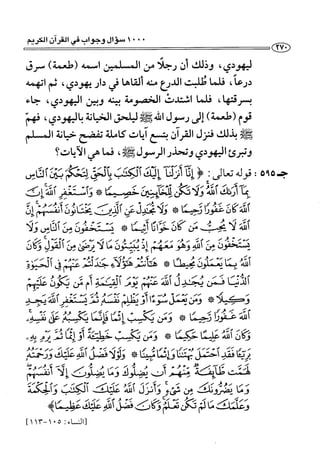 ١٠٠٠ سؤال وجواب في القرآن الكريم
٢٧٠
ليهودي، وذلك أن رجلًا من المسلمين اسمه (طعمة) سرق
درعاً، فلما طُلبت الدرع منه ألقاها في دار يهودي، ثم اتهمه
بسرقتها، فلما اشتدتْ الخصومة بينه وبين اليهودي، جاء
قوم (طعمة) إلى رسول الله ﷺ ليلحق الخيانة باليهودي، فهمّ
ﷺ بذلك فنزل القرآن بتسع آيات كاملة تفضح خيانة المسلم
وتبرئ اليهودي وتحذر الرسول ﷺ، فما هي الآيات؟
جـ٥٩٥: قوله تعالى: ﴿ إِنَّا أَنزَلْنَا إِلَيْكَ الْكِتَابَ بِالْحَقِّ لِتَحْكُمَ بَيْنَ النَّاسِ
بِمَا أَرَاكَ اللَّهُ وَلَا تَكُن لِّلْخَائِنِينَ خَصِيمًا * وَاسْتَغْفِرِ اللَّهَ إِنَّ
اللَّهَ كَانَ غَفُورًا رَّحِيمًا * وَلَا تُجَادِلْ عَنِ الَّذِينَ يَخْتَانُونَ أَنفُسَهُمْ إِنَّ
اللَّهَ لَا يُحِبُّ مَن كَانَ خَوَّانًا أَثِيمًا * يَسْتَخْفُونَ مِنَ النَّاسِ وَلَا
يَسْتَخْفُونَ مِنَ اللَّهِ وَهُوَ مَعَهُمْ إِذْ يُبَيِّتُونَ مَا لَا يَرْضَىٰ مِنَ الْقَوْلِ وَكَانَ
اللَّهُ بِمَا يَعْمَلُونَ مُحِيطًا * هَا أَنتُمْ هَٰؤُلَاءِ جَادَلْتُمْ عَنْهُمْ فِي الْحَيَاةِ
الدُّنْيَا فَمَن يُجَادِلُ اللَّهَ عَنْهُمْ يَوْمَ الْقِيَامَةِ أَم مَّن يَكُونُ عَلَيْهِمْ
وَكِيلًا * وَمَن يَعْمَلْ سُوءًا أَوْ يَظْلِمْ نَفْسَهُ ثُمَّ يَسْتَغْفِرِ اللَّهَ يَجِدِ
اللَّهَ غَفُورًا رَّحِيمًا * وَمَن يَكْسِبْ إِثْمًا فَإِنَّمَا يَكْسِبُهُ عَلَىٰ نَفْسِهِ
وَكَانَ اللَّهُ عَلِيمًا حَكِيمًا * وَمَن يَكْسِبْ خَطِيئَةً أَوْ إِثْمًا ثُمَّ يَرْمِ بِهِ
بَرِيئًا فَقَدِ احْتَمَلَ بُهْتَانًا وَإِثْمًا مُّبِينًا * وَلَوْلَا فَضْلُ اللَّهِ عَلَيْكَ وَرَحْمَتُهُ
لَهَمَّت طَّائِفَةٌ مِّنْهُمْ أَن يُضِلُّوكَ وَمَا يُضِلُّونَ إِلَّا أَنفُسَهُمْ
وَمَا يَضُرُّونَكَ مِن شَيْءٍ وَأَنزَلَ اللَّهُ عَلَيْكَ الْكِتَابَ وَالْحِكْمَةَ
وَعَلَّمَكَ مَا لَمْ تَكُن تَعْلَمُ وَكَانَ فَضْلُ اللَّهِ عَلَيْكَ عَظِيمًا ﴾
[النساء: ١٠٥-١١٣]